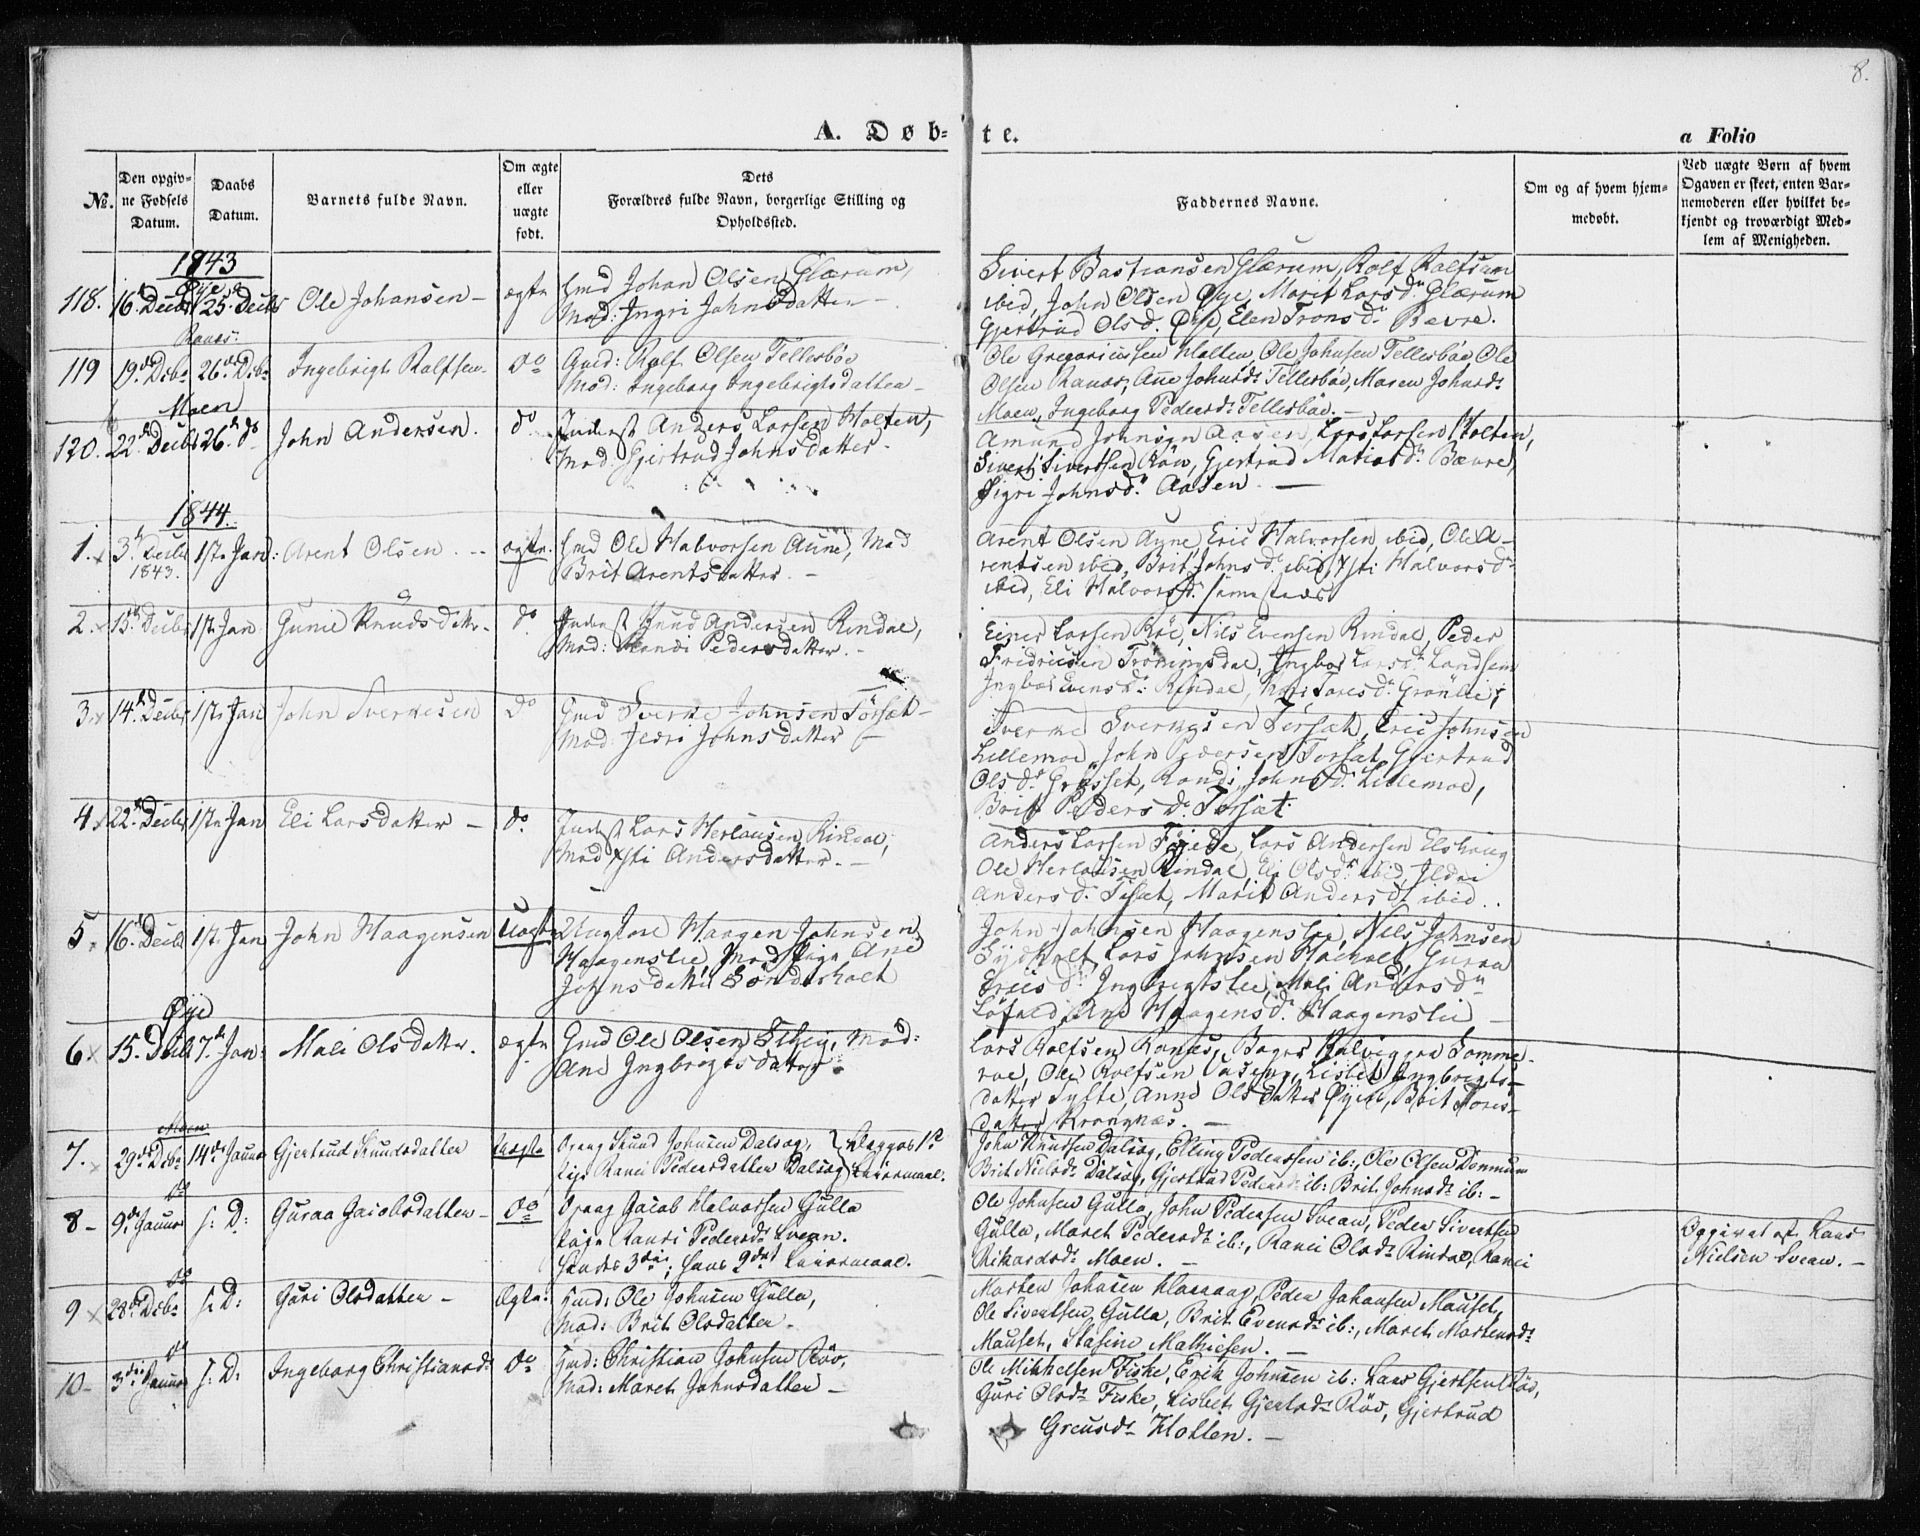 8.
A. Døb-
te.
a Folio
No.
Den opgiv-
ne Fødsels
Datum.
Daabs
Datum.
Barnets fulde Navn.
Om ægte
eller
uægte
født.
Dets
Forældres fulde Navn, borgerlige Stilling og
Opholdssted.
Faddernes Navne.
Om og af hvem hjem-
medøbt.
Ved uægte Børn af hvem
Opgaven er skeet, enten Bar-
nemoderen eller hvilket be-
kjendt og troværdigt Med-
lem af Menigheden.
1843
Øye
118. 16 Decbr 25. Decbr Ole Johansen - ægte Gmd Johan Olsen Glærum,
Mod: Ingri Johnsdatter -
Sivert Bastiansen Glærum, Rolf Rolfsen
ibid, John Olsen Øye, Marit Larsd. Glærum
Gjertrud Olsd. Øye, Elen Tronsd. Bævre.
Ranæs:
119 19de Dcbr 26de Dcbr Ingebrigt Rolfsen do Gmd: Rolf Olsen Tellesbøe
Mod: Ingeborg Ingebrigtsdatter -
Ole Gregoriussen Holten, Ole Johnsen Tellesbøe, Ole
Olsen Ranæs, Ane Johnsdr Tellesbøe, Maren Johnsdr
Moen, Ingeborg Pedersdr Tellesbøe. -
Moen
120. 22de Decbr 26. do John Andersen. do Inderst Anders Larsen Holten,
Mod: Gjertrud Johnsdatter -
Amund Johnsen Aasen, Lars Larsen Holten,
Sivert Sivertsen Røv, Gjertrud Matiasd. Bævre,
Sigri Johnsd. Aasen. -
1844.
1. 3 Decbr 1843. 1ste Jan: Arent Olsen. ægte. Gmd Ole Halvorsen Aune, Mod
Brit Arentsdatter. -
Arent Olsen Aune, Eric Halvorsen ibid, Ole A-
rentsen ibid, Brit Johnsd. ibid, Halvorsd.
ibid, Eli Halvorsd. sammesteds
2. 13 Decbr 1ste Jan Gunil Knudsdatter. do Inderst Knud Andersen Rindal,
Mod: Randi Pedersdatter. -
Einer Larsen Røe, Nils Evensen Rindal, Peder
Fridricsen Troningsdal, Ingbor Larsd. Landsem
Ingbor Evensd. Rindal, Toresd. Grønlie,
3. 14 Decbr 1ste Jan John Sverkesen do Gmd Sverke Johnsen Torset -
Mod: Ildri Johnsdatter -
Sverke Sverkesen Torset, Eric Johnsen
Lillemoe, John Pedersen Torset, Gjertrud
Olsd. Græsset, Randi Johnsd. Lillemoe,
Brit Pedersd. Torset.
4 22 Decbr 1ste Jan Eli Larsdatter - do. Inderst Lars Herlousen Rindal,
Mod Andersdatter. -
Anders Larsen Tøiede, Lars Andersen Elshoug
Ole Herlousen Rindal, Eli Olsd. ibid, Ildri
Andersd. Torset, Marit Andersd. ibid.
5. 16 Decbr 1ste Jan John Haagensen Uægte Ungkarl Haagen Johnsen
Haagenslie, Mod: Pige Ane
Johnsdatter Sønderholt
John Johnsen Haagenslie, Nils Johnsen
Sydholt, Lars Johnsen Haaholt, Guraa
Ericsd. Ingbrigtslie, Mali Andersd.
Løfald, Ane Haagensd. Haagenslie -
Øye
6 15. Decbr 7de Jan: Mali Olsdatter. ægte Gmd Ole Olsen, Mod:
Ane Ingbrigtsdatter.
Lars Rolfsen Ranæs, Halvigsen Somme-
roe, Ole Rolfsen Aasen, Lisbet Ingbrigts-
datter Sylte, Anne Olsdatter Øyen, Brit Tores-
datter Kroknæs. -
Moen
7. 29de Dcbr 14de Januar Gjertrud Knudsdatter Uægte Dreng Knud Johnsen Dalsæg,
Pige Ranei Pedersdatter Dalsæg Begges 1ste Leiermaal.
John Knudsen Dalsæg, Elling Pedersen ib:, Ole Olsen Dønnum
Brit Nielsdr Dalsæg, Gjertrud Pedersdr ib: Brit Johnsdr ib: -
do
8 - 9de Januar s: D: Guraa Jacobsdatter - do Dreng Jacob Halvorsen Gulla
Pige Ranei Pedersdr Svean.
hendes 3die; hans 2det Leiermaal.
Ole Johnsen Gulla, John Pedersen Svean, Peder Sivertsen
Gulla, Maret Pedersdr ib:, Ranei Olsdr Rindal, Ranei
Rikardsdr Moen. -
Opgivet af Lars
Nielsen Svean. -
do
9 28de Dcbr s: D: Guri Olsdatter - Ægte. Gmd: Ole Johnsen Gulla,
Mod: Brit Olsdatter -
Morten Johnsen, Peder Johansen Mauset,
Ole Sivertsen Gulla, Brit Evensdr ib:, Maret Mortensdr
Mauset, Stasine Mathiesen. -
do
10 - 3die Januar s: D: Ingeborg Christiansdr do Gmd: Christian Johnsen Røv,
Mod: Maret Johnsdatter -
Ole Mikkelsen Fiske, Erik Johnsen ib: Lars Gjertsen Røv,
Guri Olsdr Fiske, Lisbet Gjertsdr Røv, Gjertrud
Greusdr Holten. -